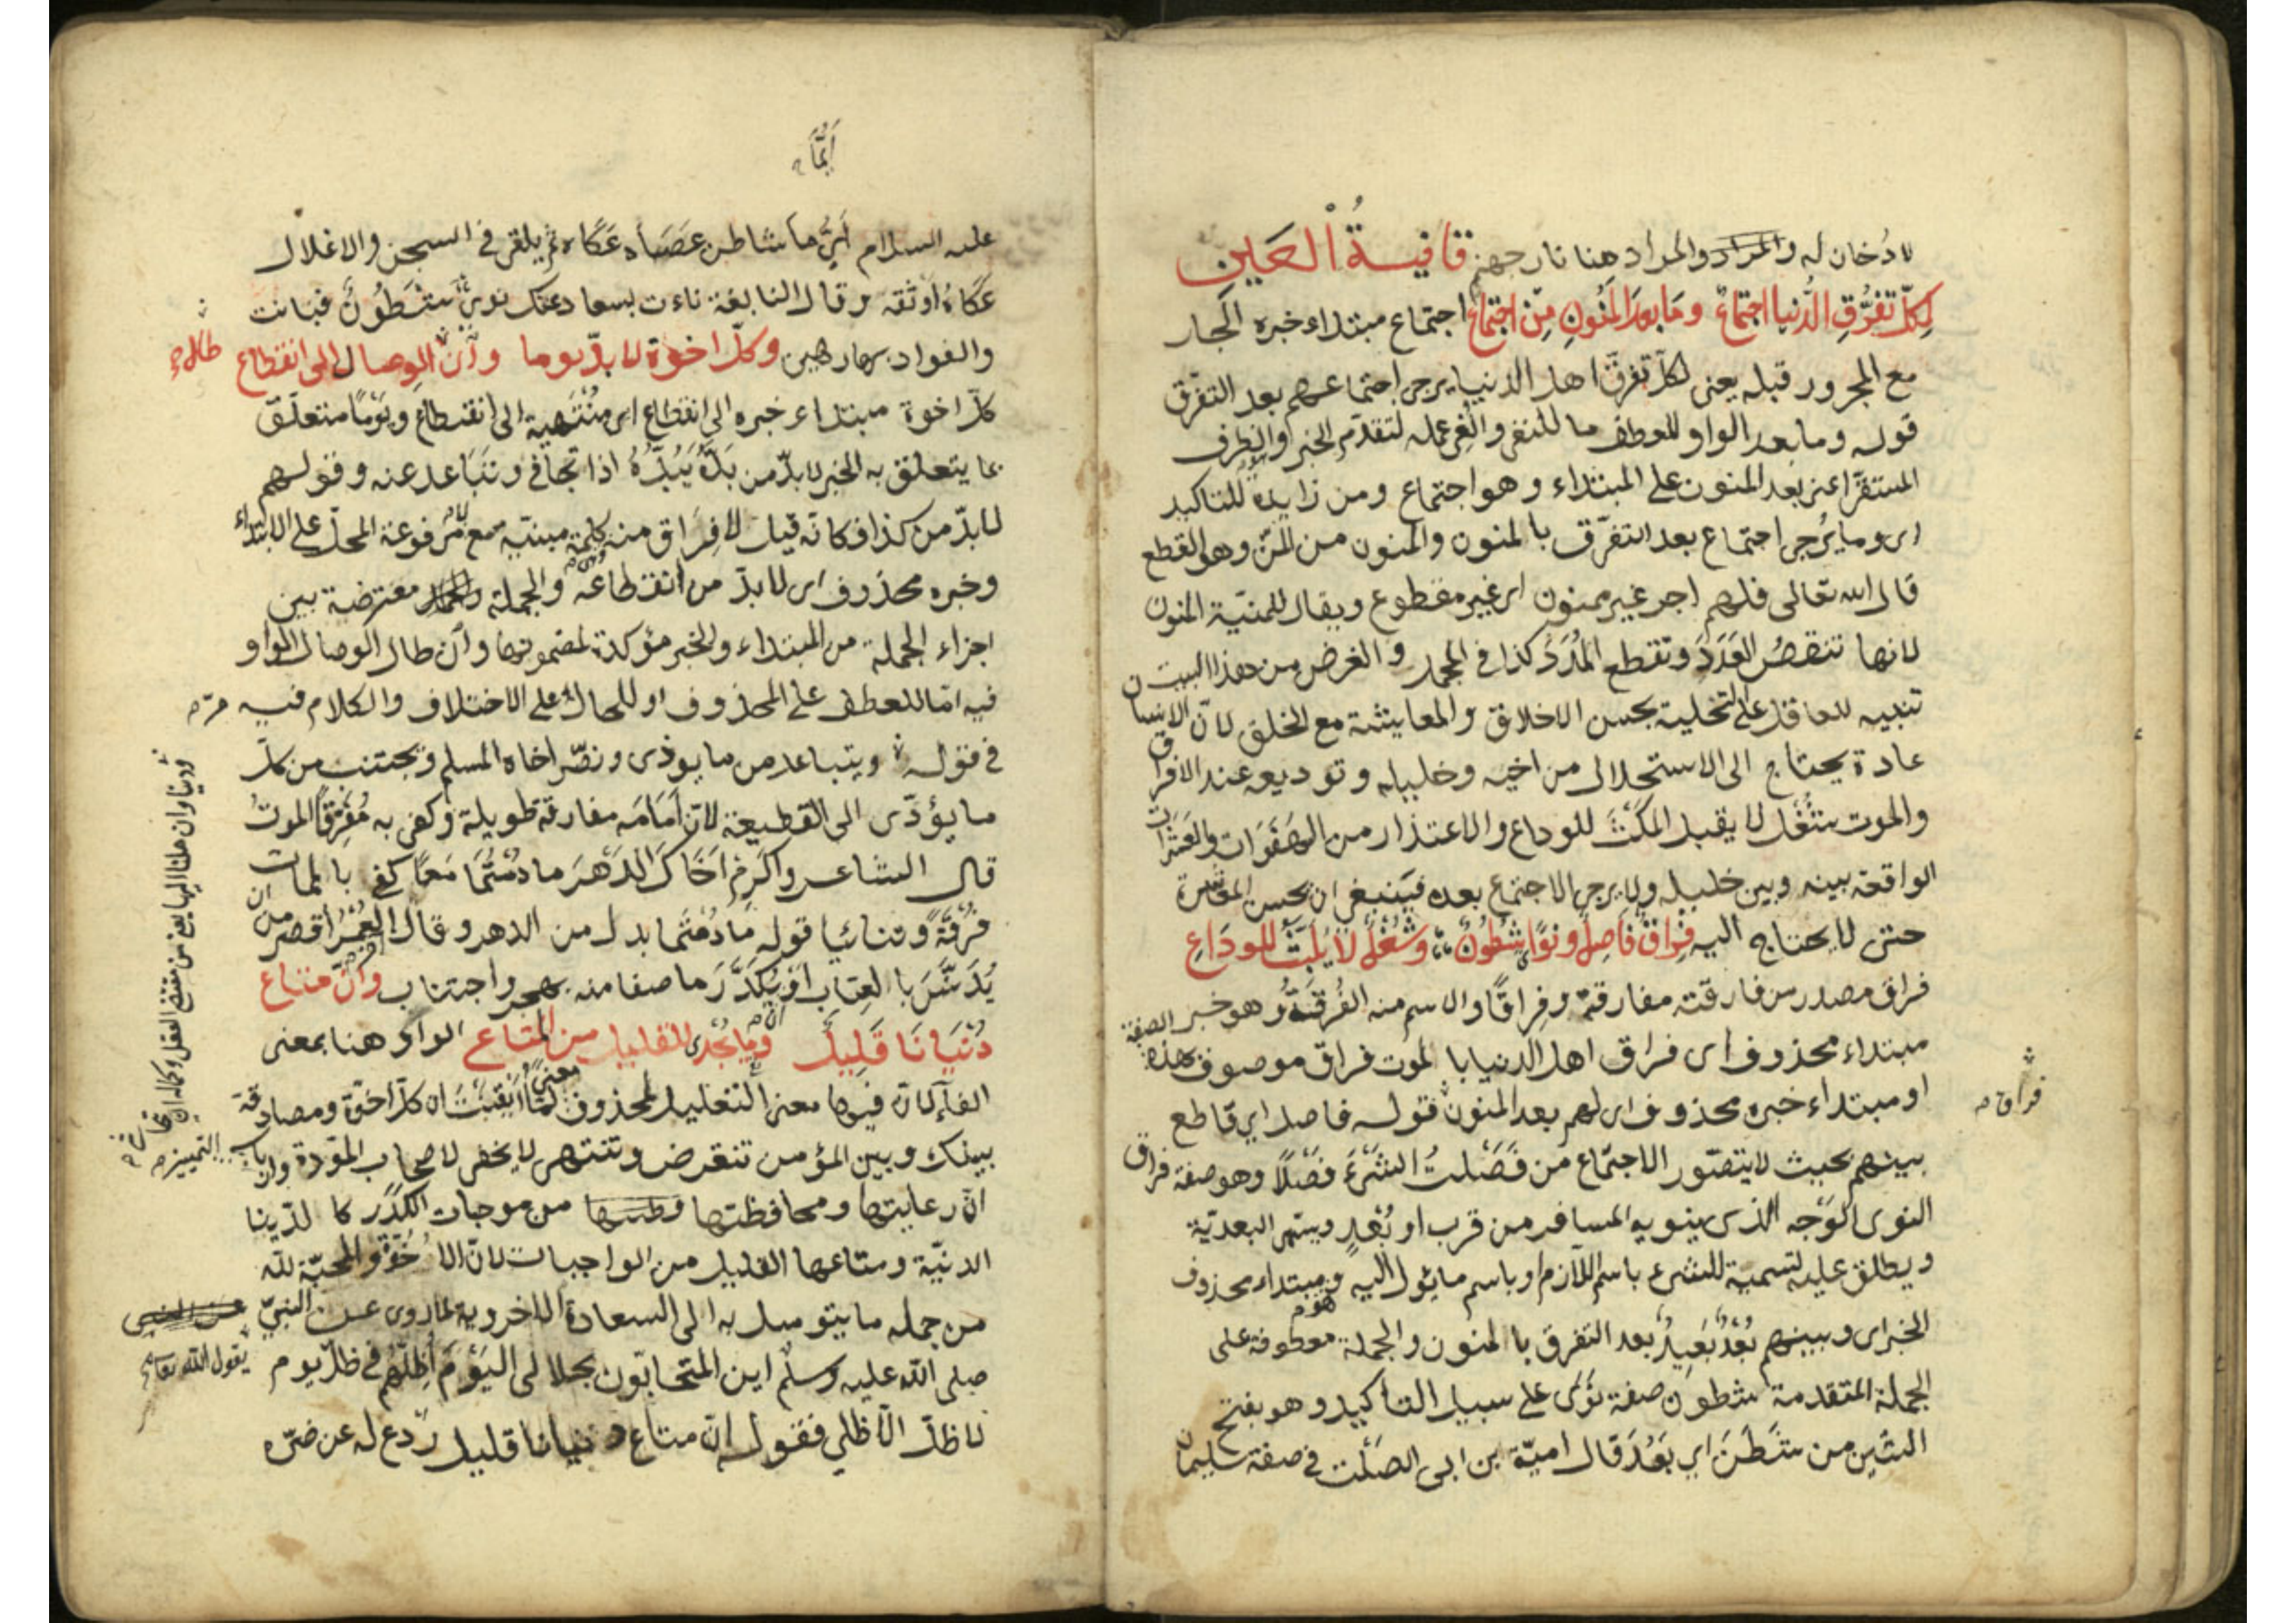 لا دُخان له والمراد والمراد هنا نار جهنم قافيةُ الْعَين
لِكلّ تفرُّقِ الدُّنيا اجتماعٌ وَمَا بعدَ المَنُونِ مِن اجتماعِ اجتماع مبتداء خبره الجار
مع المجرور قبله يعنى لكلّ تفرّق اهل الدنيا يرجى اجتماعهم بعد التفرّق
قوله وما بعد الواو للعطف ما للنفى والغى عمله لتقدّم الخبر والظرف
المستقرّ اعنى بعد المنون على المبتداء وهو اجتماع ومن زايدة للتاكيد
اى وما يُرجى اجتماع بعد التفرّق بالمنون والمنون من المنّ وهو القطع
قال الله تعالى فلهم اجر غير ممنون اى غير مقطوع ويقال للمنيّة المنون
لانها تنقصُ العَدَدَ وتقطع المَدَدَ كذا فى المجمل والغرض من هذا البيت
تنبيه للعاقل على التخلية بحسن الاخلاق والمعايشة مع الخلق لانّ الانسان
عادة يحتاج الى الاستحلال من اخيه وخليله وتوديعه عند الافراق
والموت شُغْل لا يقبل المكْثَ للوداع والاعتذار من الهَفَوَات والعَثَرات
الواقعة بينه وبين خليله ولا يرجى الاجتماع بعده فينبغى ان يحسن المعاشرة
حتى لا يحتاج اليه فِراقٌ فَاصِلٌ ونوًا شَطُونٌ وشُغْلٌ لا يُلبّثُ للودَاعِ
فراق مصدر من فارقته مفارقة وفِراقًا والاسم منه الفُرقَةُ وهو خبر
مبتداء محذوف اى فراق اهل الدنيا بالموت فراق موصوف بهذه الصفة
او مبتداء خبره محذوف اى لهم بعد المنون قوله فاصل اي قاطع
بينهم بحيث لا يتصّور الاجتماع من فَصَلتُ الشئَ فَصْلًا وهو صفة فراق
فراق
النوى الوَجْه الذى ينويه المسافر من قرب او بُعْدٍ ويسمى البعديّة
ويطلق عليه لتسمية للشئ باسم اللازم او باسم مايئول اليه وهو مبتداء محذوف
الخبر اى وبينهم بُعْدٌ بَعِيدٌ بعد التفرق بالمنون والجملة معطوفة على
الجملة المتقدمة شطون صفة نوًى على سبيل التأكيد وهو بفتح
الشين من شَطَنَ اي بَعُدَ قال اميّة ابن ابى الصَلْت فى صفة سليمان
أيُّمَا
عليه السلام أيُّما شاطنٍ عَصَاه عَكَاه ثم يلقى فى السجن والاغلال
عَكَاهُ اوثقه وقال النابغة ناءت بسعاد عنك نوىً شَطُونٌ فبانت
والفواد بها رهين وكلّ اخوّة لا بدّ يوما وأن طال الوصال الى انقطاع
كلّ اخوة مبتداء خبره الى انقطاع اى مُنْتَهية الى انقطاع ويَوْمًا متعلّق
بما يتعلق به الخبر لا بدّ من بَدَّهُ يَبُدُّهُ اذا تجافى وتَبَاعد عنه وقولهم
لا بدّ من كذا فكانّه قيل لا فِراق منه كلمة مبنيّه مع لا مرفوعة المحلّ على الابتداء
وخبره محذوف اى لا بدّ من انقطاعه والجملة معترضة بين
اجزاء الجملة من المبتداء والخبر مؤكدة لمضمونها وأن طال الوصال الواو
فيه امّا للعطف على المحذوف او للحال على الاختلاف والكلام فيه مرّ
فى قوله ويتباعد من ما يوذى ونصّر اخاه المسلم ويجتنب من كلّ
ما يؤدّى الى القطيعة لانّ اَمَامَه مفارقة طويلة وكفى به مُفَرِّقًا الموتُ
قال الشاعر واكرِمْ اَخَاكَ الدَهْرَ ما دُمْتُمَا مَعًا كفى بالممات
فُرْقَةً وتنائيا قوله مَا دُمْتُمَا بدل من الدهر وقال العُمْرُ اقصر من ان
يُدَنَّسَ بالعِتاب او يُكَدَّرَ ما صفا منه بهجر واجتناب وأنّ متاع
دُنْيَانَا قَلِيلٌ وما يُجْدى القليل من المتاع الواو هنا بمعنى
الفاء لانّ فيها معنى التعليل لمحذوف معنى لمّا أيقَنتَ ان كلّ اخوّة ومصادقة
بينك وبين المؤمن تنقرض وتنتهى لا يخفى لاصحاب المودّة وانّ
انّ رعايتها ومحافظتها من موجبات الكَدَر كما لدّينا
الدنيّة ومتاعها القليل من الواجبات لانّ الاُخُوّة والمحبّة للّه
من جمله ما يتوصل به الى السعادة الاخروية لما روى عن النبيّ
صلى اللّه عليه وسلم يقول اللّه تعالى اين المتحابّون بجلالى اليَوْمَ أُظِلّهم فى ظلّى يوم
لا ظلّ الّا ظلّي فقوله انّ متاع دنيانا قليل ردع له عن ضرّه
طال